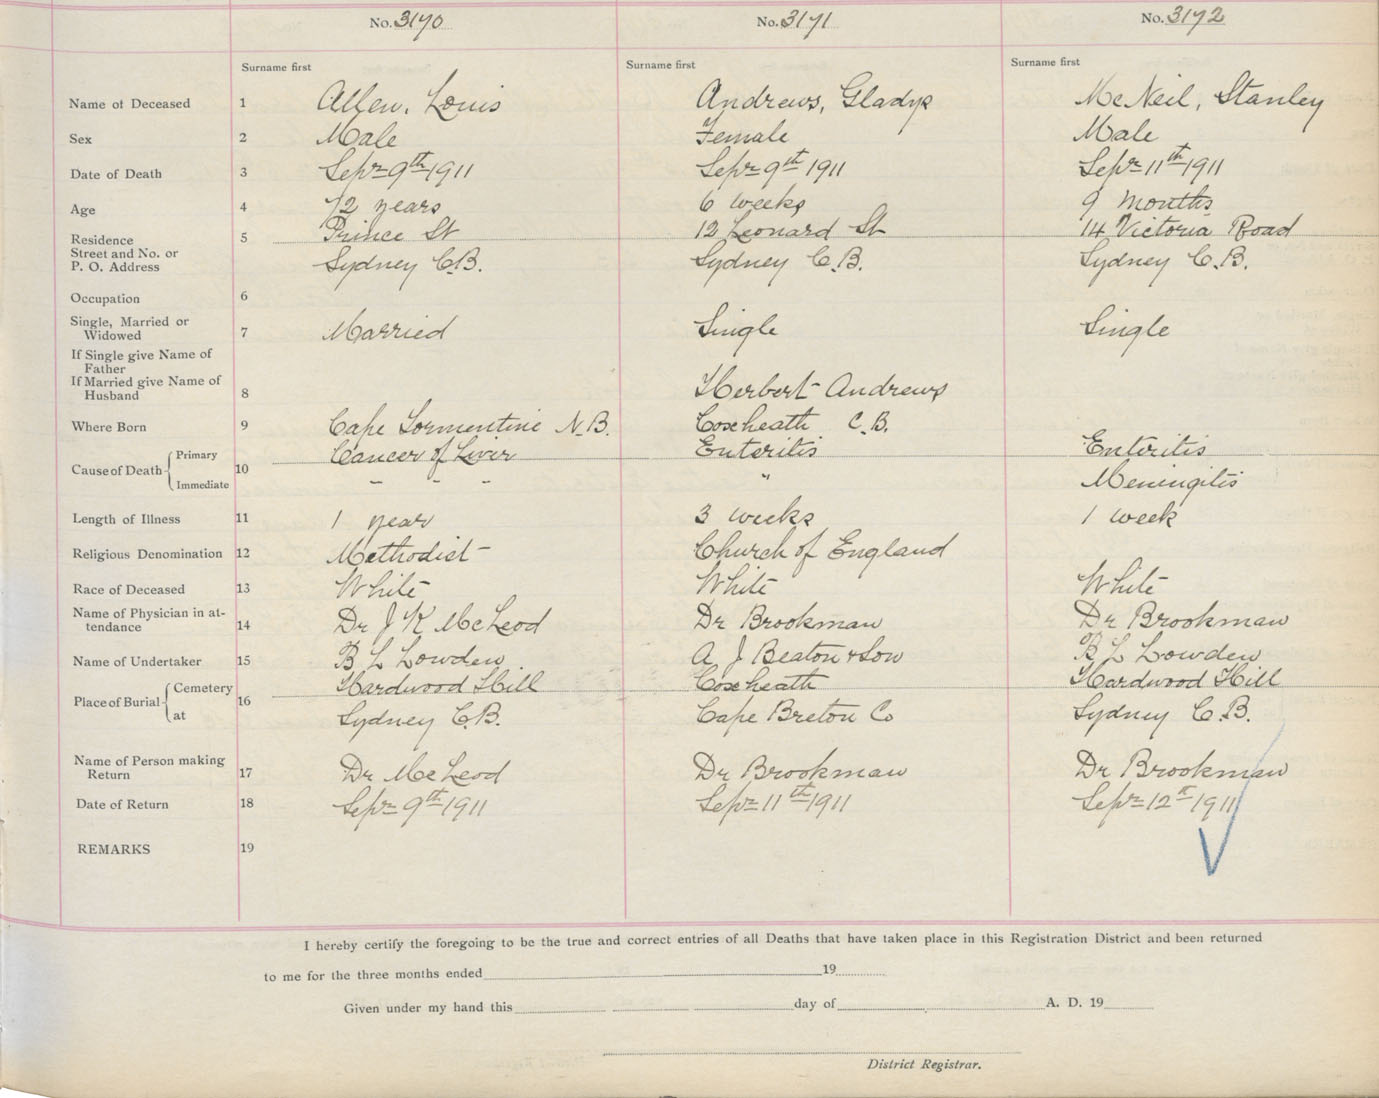 No. 3170 No. 3171 No. 3172
Surname first Surname first Surname first
Name of Deceased 1 Allen, Louis Andrews, Gladys McNeil, Stanley
Sex 2 Male Female Male
Date of Death 3 Sepr 9th 1911 Sepr 9th 1911 Sepr 11th 1911
Age 4 72 years 6 weeks 9 months
Residence 5 Prince St 12 Leonard St 14 Victoria Road
Street and No. or
P. O. Address Sydney C.B. Sydney C.B. Sydney C.B.
Occupation 6
Single, Married or
Widowed 7 Married Single Single
If Single give Name of
Father
If Married give Name of
Husband 8 Herbert Andrews
Where Born 9 Cape Tormentine N.B. Coxheath C.B.
Cause of Death 10 Primary Cancer of Liver Enteritis Enteritis
Immediate " " " " Meningitis
Length of Illness 11 1 year 3 weeks 1 week
Religious Denomination 12 Methodist Church of England
Race of Deceased 13 White White White
Name of Physician in at-
tendance 14 Dr J K McLeod Dr Brookman Dr Brookman
Name of Undertaker 15 B L Lowden A J Beaton & Son B L Lowden
Place of Burial 16 Cemetery Hardwood Hill Coxheath Hardwood Hill
at Sydney C.B. Cape Breton Co Sydney C.B.
Name of Person making
Return 17 Dr McLeod Dr Brookman Dr Brookman
Date of Return 18 Sepr 9th 1911 Sepr 11th 1911 Sepr 12th 1911
REMARKS 19
I hereby certify the foregoing to be the true and correct entries of all Deaths that have taken place in this Registration District and been returned
to me for the three months ended 19
Given under my hand this day of A. D. 19
District Registrar.